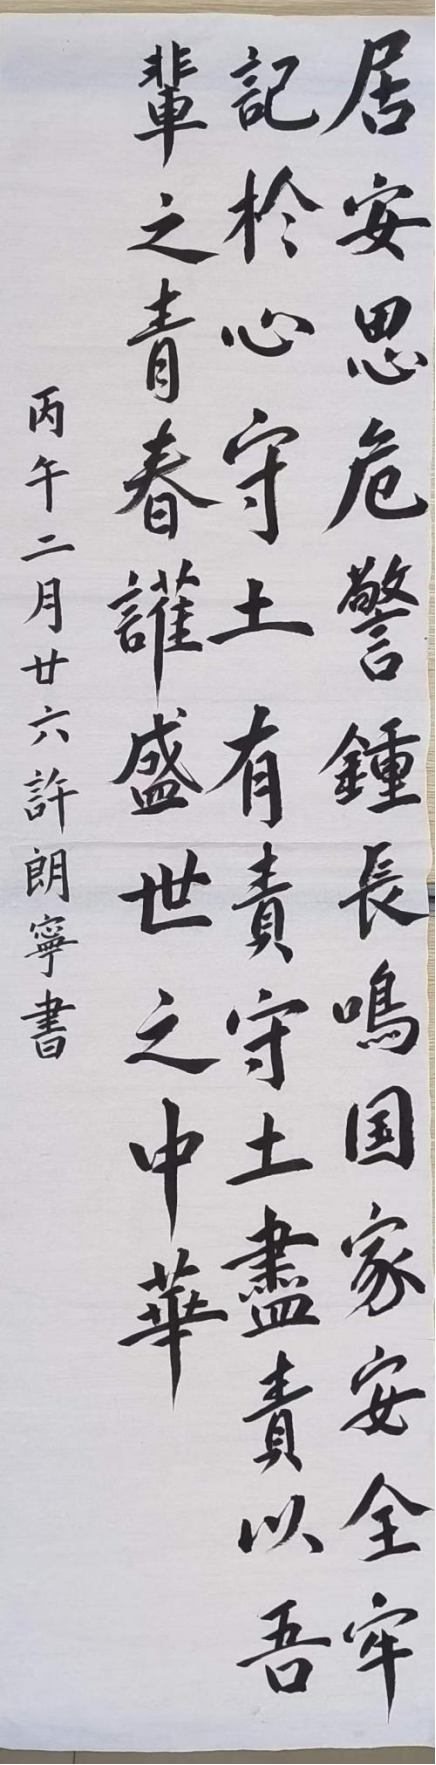 居安思危警鍾長鳴国家安全牢
記於心守土有責守土盡責以吾
輩之青春護盛世之中華
丙午二月廿六許朗寧書